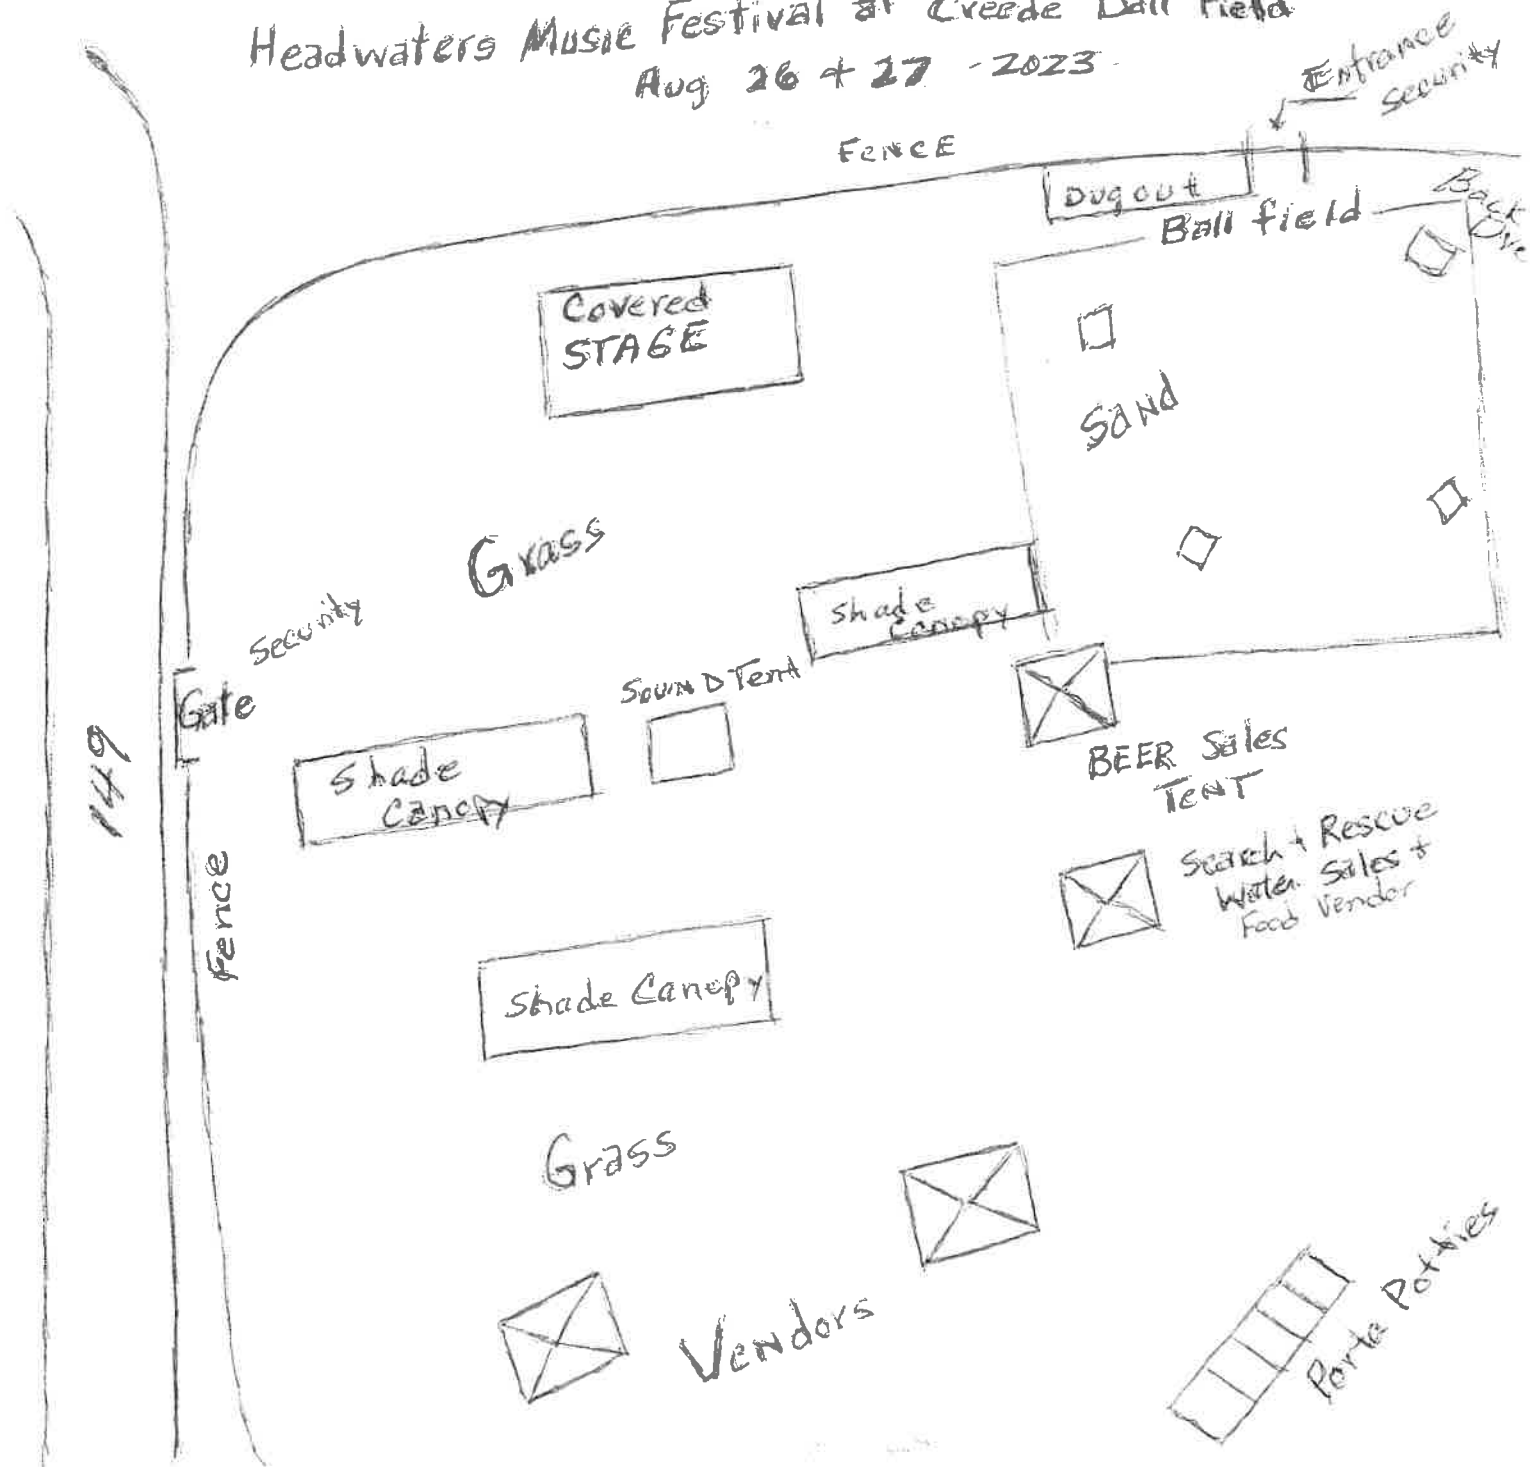 Headwaters Music Festival at Creede Ball Field
Aug 26 + 27 - 2023
Entrance
security
FENCE
Dugout
Ball field
Back
Covered
STAGE
SAND
Grass
Security
Shade
Canopy
SOUND Tent
Gate
149
Shade
Canopy
BEER Sales
TENT
Search + Rescue
Water Sales +
Food Vendor
Fence
Shade Canopy
Grass
Vendors
Porta Potties